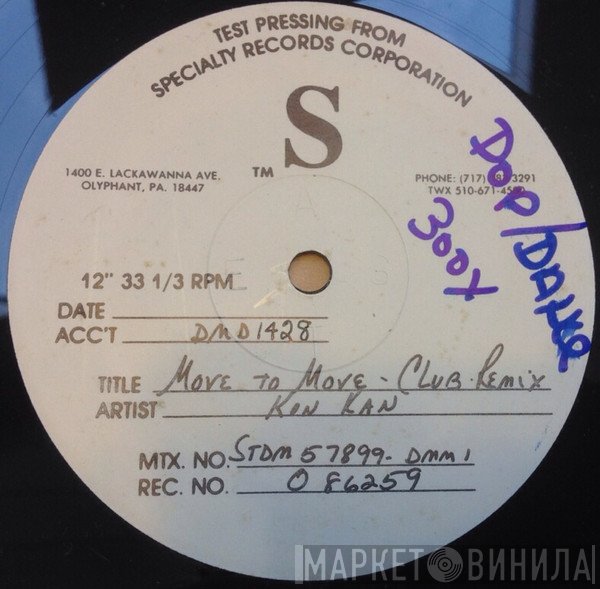 TEST PRESSING FROM
SPECIALTY RECORDS CORPORATION
S
TM
1400 E. LACKAWANNA AVE.
OLYPHANT, PA. 18447
PHONE: (717) 3291
TWX 510-671-
DOP/DANCE
300X
12" 33 1/3 RPM
DATE
ACC'T DMD1428
TITLE MOVE TO MOVE - CLUB REMIX
ARTIST KON KAN
MTX. NO. STDM 57899-DMM1
REC. NO. 0 86259
МАРКЕТ ВИНИЛА